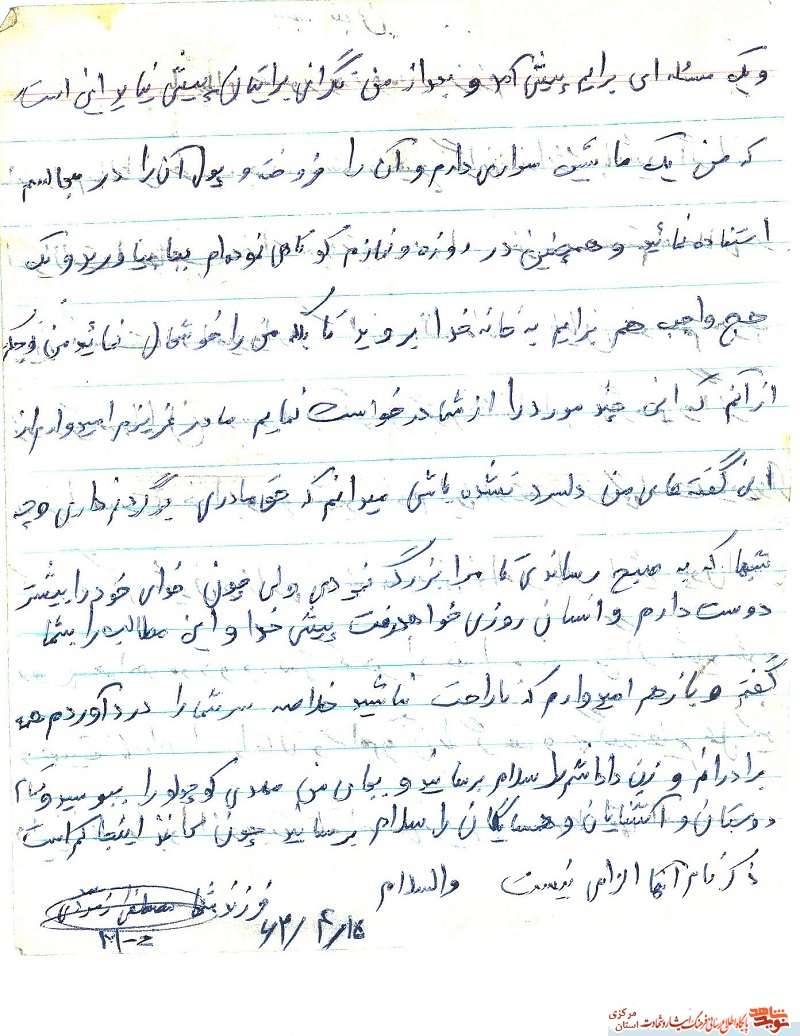 و یک مسئله ای برایم پیش آمد و بعد از من نگرانی برایتان پیش نیاید این است
که من یک ماشین سواری دارم و آن را فروخته و پول آن را در مجالسم
استفاده نمائید و همچنین در روزه و نمازم کوتاهی نموده‌ام بجا بیاورید و یک
حج واجب هم برایم به خانه خدا بروید تا بلکه من را خوشحال نمائید من کوچکتر
از آنم که این چند مورد را از شما درخواست نمایم مادر عزیزم امیدوارم از
این گفته های من دلسرد نشده باشی میدانم که حق مادری بر گردنم داری و چه
شبها که به صبح رساندی تا مرا بزرگ نمودی ولی چون خدای خود را بیشتر
دوست دارم و انسان روزی خواهد رفت پیش خدا و این مطالب را بشما
گفتم و باز هم امیدوارم که ناراحت نباشید خلاصه سر شما را درد آوردم همه
برادرانم و زن داداشم را سلام برسانید و بجای من مهدی کوچولو را ببوسید و تمام
دوستان و آشنایان و همسایگان را سلام برسانید چون کاغذ اینجا کم است
ذکر نام آنها الزامی نیست والسلام
فرزند شما مصطفی
۶۳/۴/۱۵
نوید شاهد
پایگاه اطلاع رسانی فرهنگ ایثار و شهادت استان مرکزی